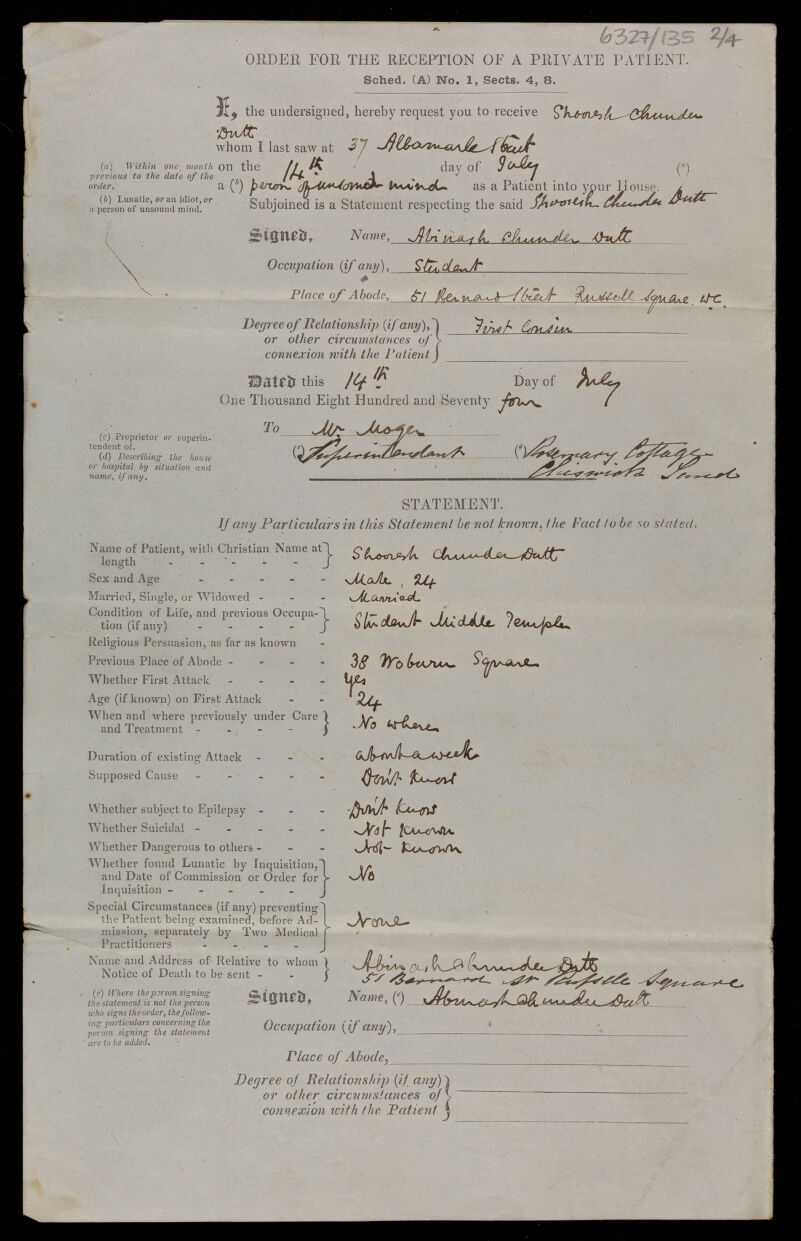 6327/135 2/4
ORDER FOR THE RECEPTION OF A PRIVATE PATIENT.
Sched. (A) No. 1, Sects. 4, 8.
I, the undersigned, hereby request you to receive Shooresh Chunder
Dutt
whom I last saw at 37 Albamarle Street
(a) Within one month previous to the date of the order.
on the 14th day of July (a)
(b) Lunatic, or an idiot, or a person of unsound mind.
a (b) person of unsound mind as a Patient into your House.
Subjoined is a Statement respecting the said Shooresh Chunder Dutt
Signed, Name, Abinash Chunder Dutt
Occupation (if any), Student
Place of Abode, 51 Bernard Street Russell Square. W.C.
Degree of Relationship (if any), or other circumstances of connexion with the Patient } First Cousin
Dated this 14th Day of July
One Thousand Eight Hundred and Seventy four
(c) Proprietor or superintendent of.
(d) Describing the house or hospital by situation and name, if any.
To Mr. Moger
(c) Superintendant (d) Rosemary Cottage
Chiswick
STATEMENT.
If any Particulars in this Statement be not known, the Fact to be so stated.
Name of Patient, with Christian Name at length - - - - - } Shooresh Chunder Dutt
Sex and Age - - - - - Male, 24
Married, Single, or Widowed - - - Married
Condition of Life, and previous Occupation (if any) - - - - } Student Middle Temple
Religious Persuasion, as far as known -
Previous Place of Abode - - - - 38 Woburn Square
Whether First Attack - - - - Yes
Age (if known) on First Attack - - 24
When and where previously under Care and Treatment - - - - } No where
Duration of existing Attack - - - about a week
Supposed Cause - - - - - Don't know
Whether subject to Epilepsy - - - Don't know
Whether Suicidal - - - - - Not known
Whether Dangerous to others - - - Not known
Whether found Lunatic by Inquisition, and Date of Commission or Order for Inquisition - - - - - } No
Special Circumstances (if any) preventing the Patient being examined, before Admission, separately by Two Medical Practitioners - - - - } None
Name and Address of Relative to whom Notice of Death to be sent - - } Abinash Chunder Dutt
51 Bernard St Russelle Square
(e) Where the person signing the statement is not the person who signs the order, the following particulars concerning the person signing the statement are to be added.
Signed, Name, (e) Abinash Chunder Dutt
Occupation (if any),
Place of Abode,
Degree of Relationship (if any) or other circumstances of connexion with the Patient }